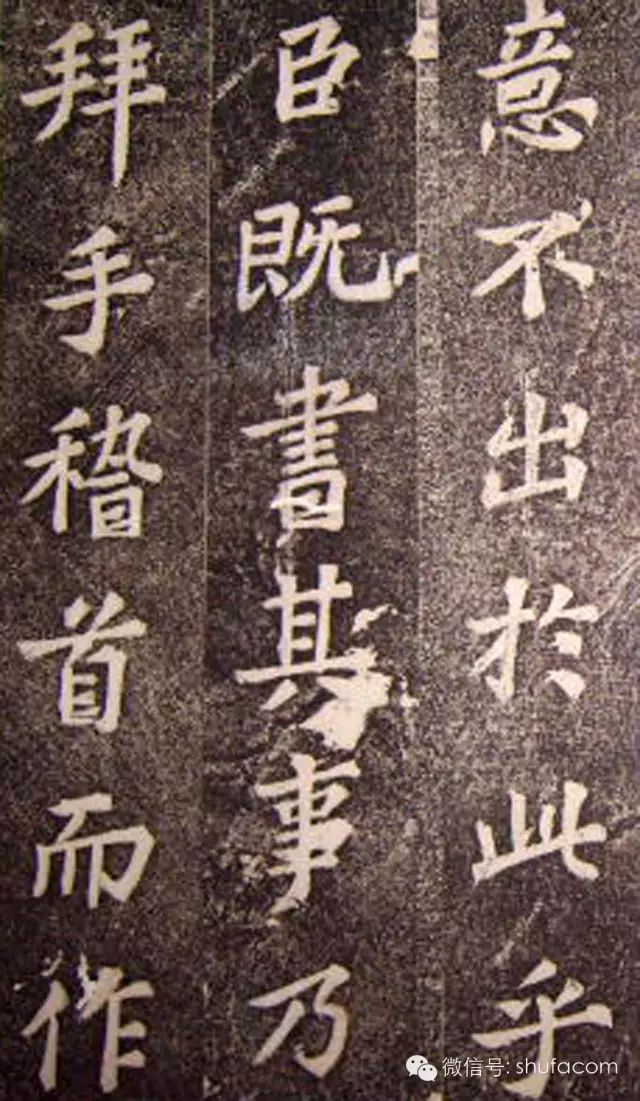 意不出於此乎
臣既書其事乃
拜手稽首而作
微信号: shufacom